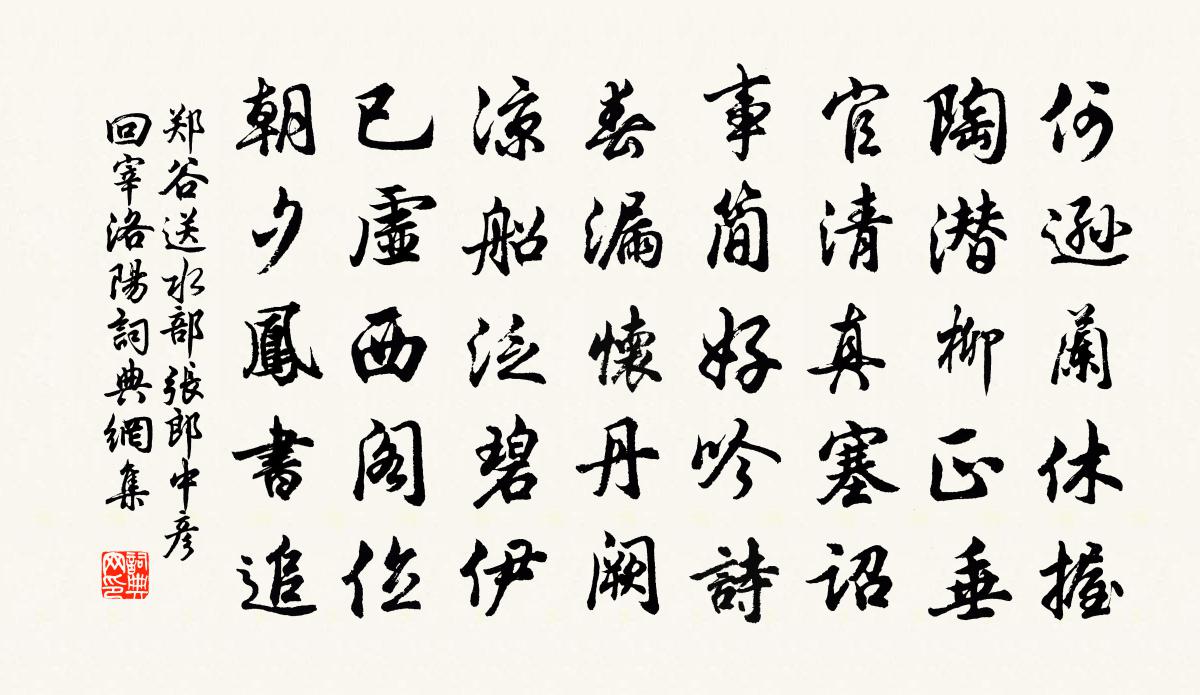 何遜蘭休握
陶潛柳正垂
官清真塞詔
事簡好吟詩
春漏懷丹闕
涼船泛碧伊
已虛西閣位
朝夕鳳書追
郑谷送水部張郎中彥
回宰洛陽詞典網集
詞典
网印